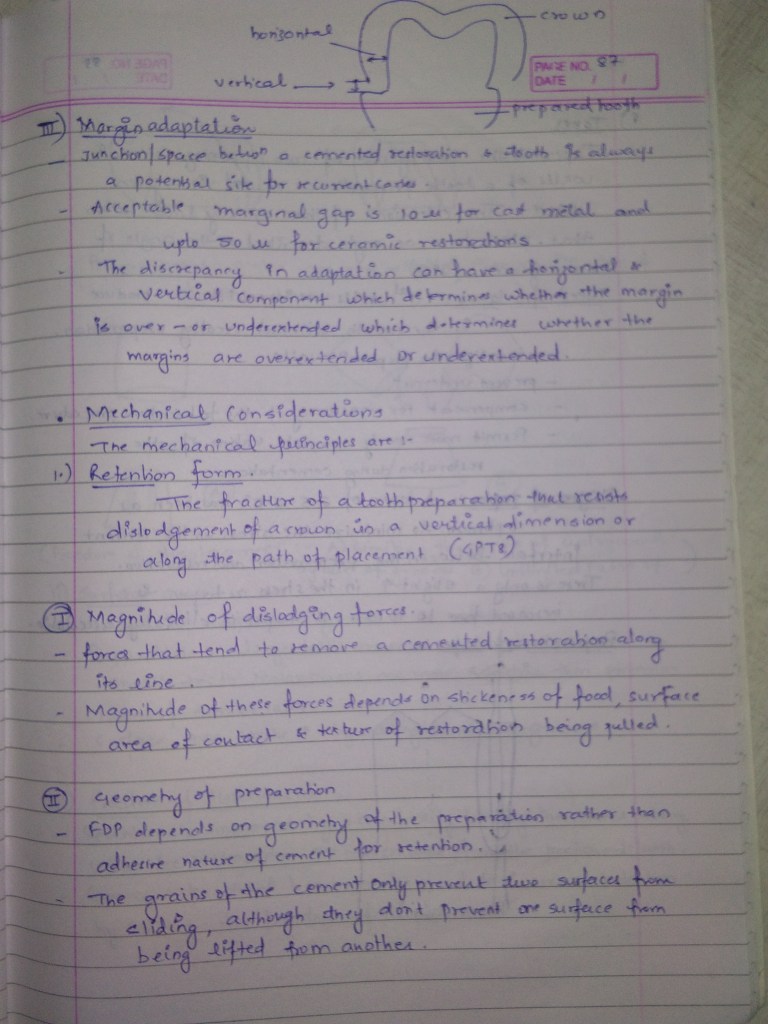 crown
horizontal
PAGE NO. 87
DATE / /
vertical
prepared tooth
III) Margin adaptation
- Junction/space betwn a cemented restoration & tooth is always
a potential site for recurrent caries
- Acceptable marginal gap is 10 u for cast metal and
upto 50 u for ceramic restorations
- The discrepancy in adaptation can have a horizontal &
vertical component which determines whether the margin
is over - or underextended which determines whether the
margins are overextended or underextended.
• Mechanical Considerations
The mechanical principles are :-
1.) Retention form.
The fracture of a tooth preparation that resists
dislodgement of a crown in a vertical dimension or
along the path of placement (GPT8)
I Magnitude of disladging forces.
- forces that tend to remove a cemented restoration along
its line.
- Magnitude of these forces depends on stickeness of food, surface
area of contact & texture of restoration being pulled.
II Geometry of preparation
- FDP depends on geometry of the preparation rather than
adhesive nature of cement for retention.
- The grains of the cement only prevent two surfaces from
sliding, although they don't prevent one surface from
being lifted from another.